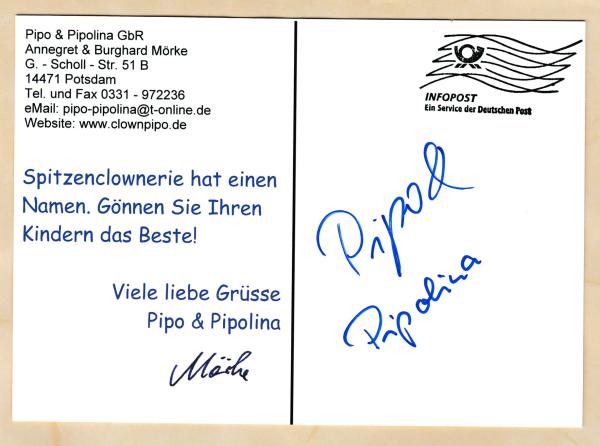 Pipo & Pipolina GbR
Annegret & Burghard Mörke
G. - Scholl - Str. 51 B
14471 Potsdam
Tel. und Fax 0331 - 972236
eMail: pipo-pipolina@t-online.de
Website: www.clownpipo.de
Spitzenclownerie hat einen
Namen. Gönnen Sie Ihren
Kindern das Beste!
Viele liebe Grüsse
Pipo & Pipolina
Mörke
INFOPOST
Ein Service der Deutschen Post
Pipo &
Pipolina